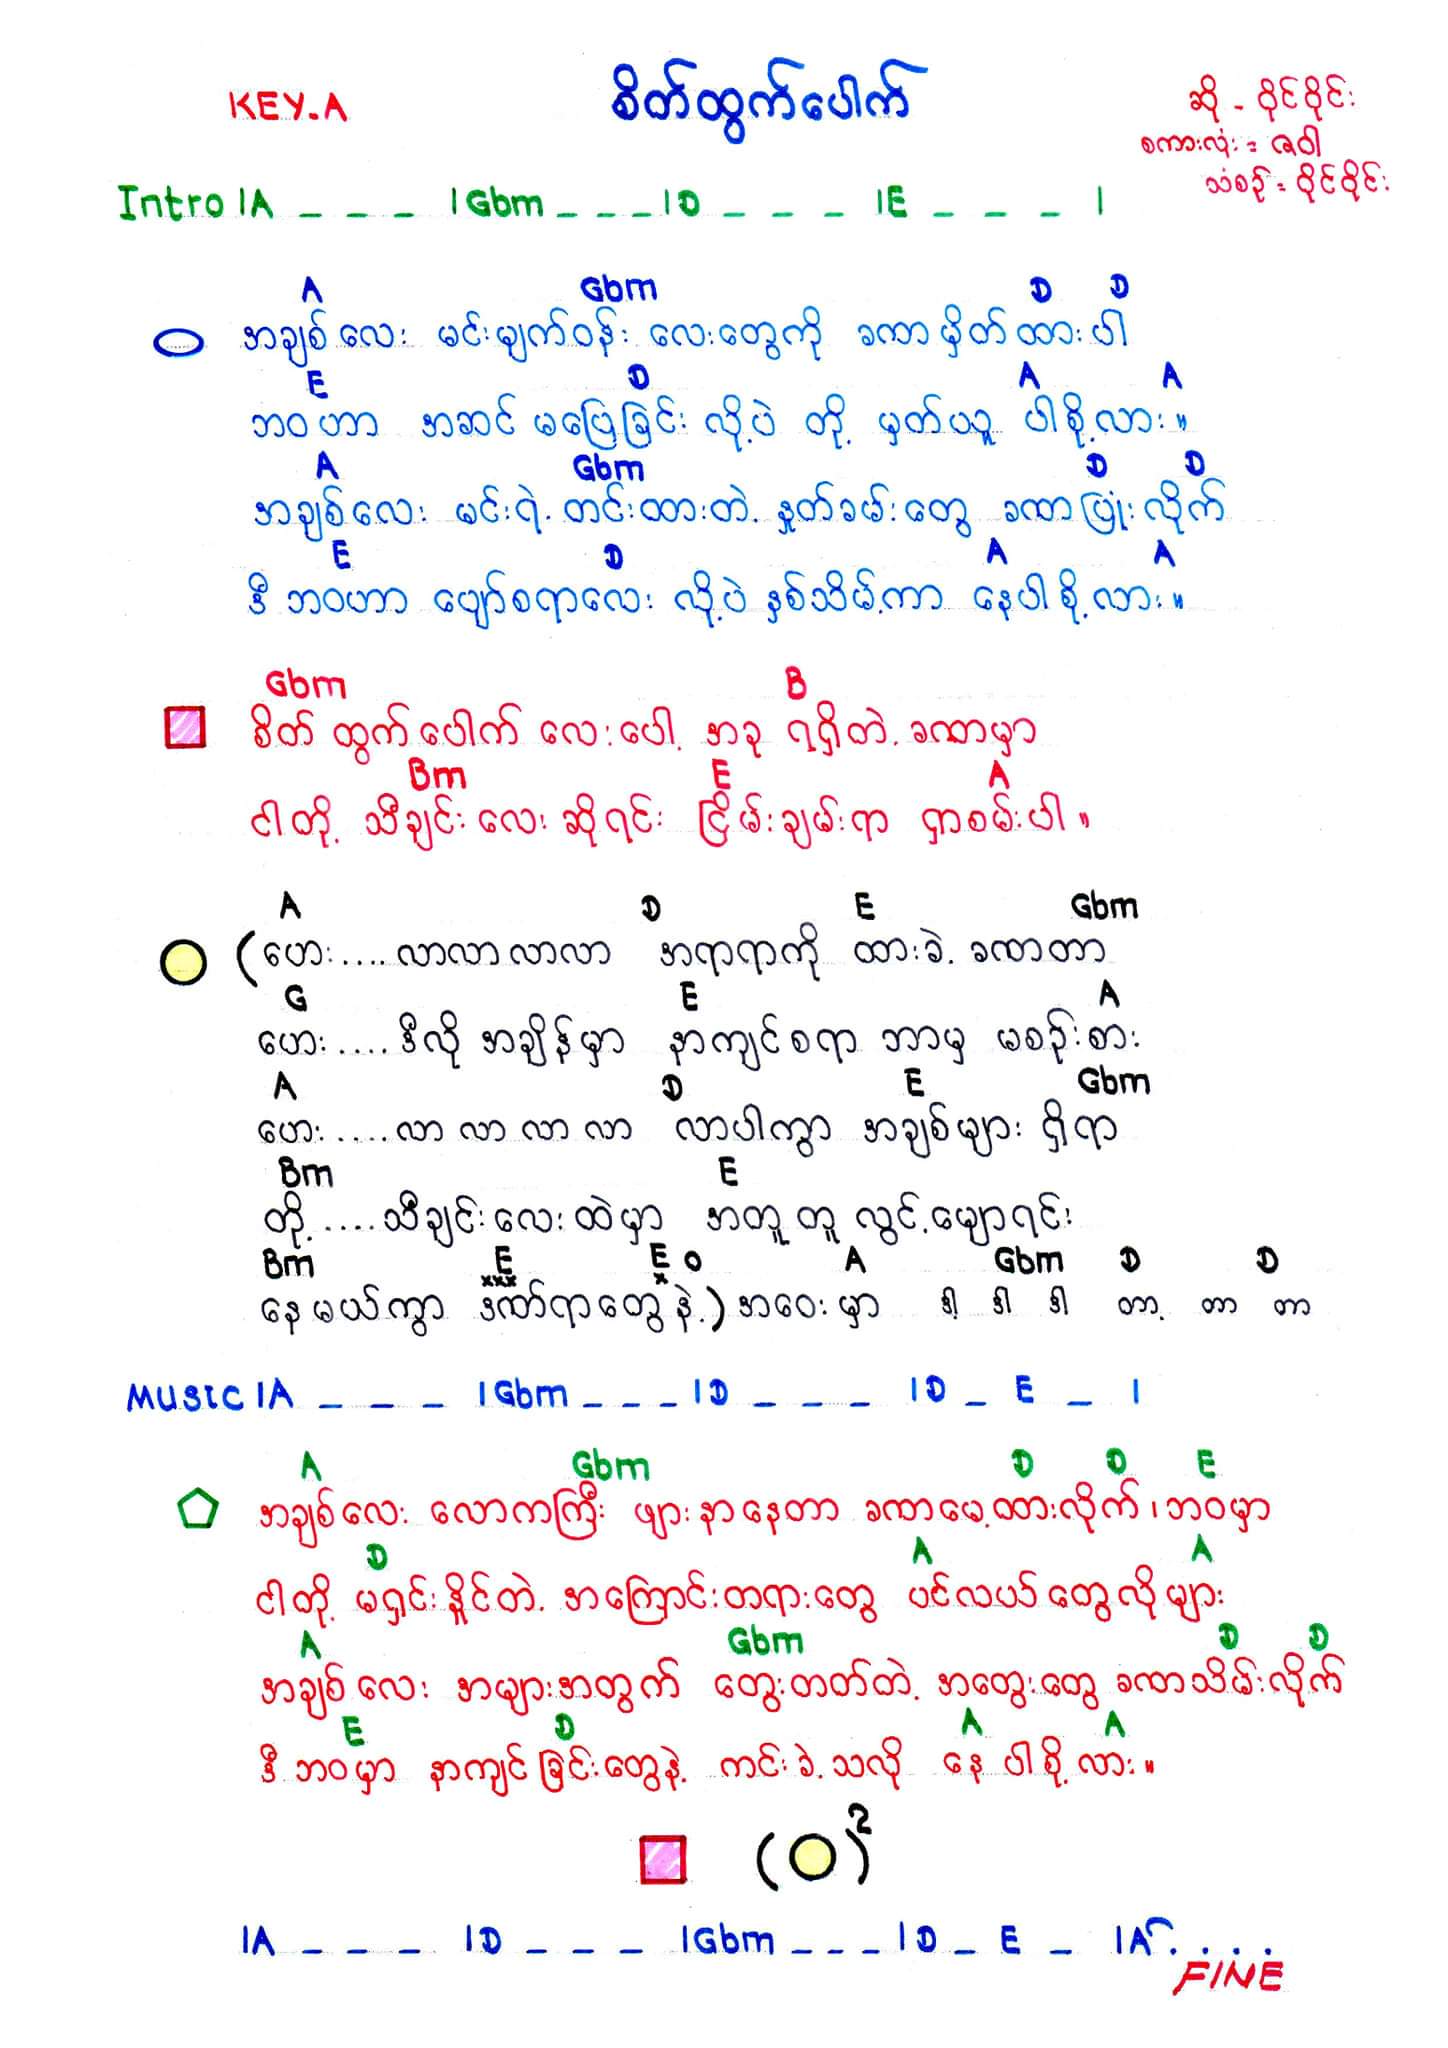 KEY.A
စိတ်ထွက်ပေါက်
ဆို - ဝိုင်ဝိုင်း
စကားလုံး = ဇဝါ
သံစဉ် = ဝိုင်ဝိုင်း
Intro |A _ _ _ |Gbm _ _ _ |D _ _ _ |E _ _ _ |
A Gbm D D
အချစ်လေး မင်းမျက်ဝန်း လေးတွေကို ခဏမှိတ်ထားပါ
E D A A
ဘဝဟာ အဆင်မပြေခြင်း လို့ပဲ တို့ မှတ်ယူ ပါစို့လား။
A Gbm D D
အချစ်လေး မင်းရဲ့ တင်းထားတဲ့ နှုတ်ခမ်းတွေ ခဏပြုံးလိုက်
E D A A
ဒီ ဘဝဟာ ပျော်စရာလေး လို့ပဲ နှစ်သိမ့်ကာ နေပါစို့လား။
Gbm B
စိတ် ထွက်ပေါက် လေးပေါ့ အခု ရရှိတဲ့ ခဏမှာ
Bm E A
ငါတို့ သီချင်းလေး ဆိုရင်း ငြိမ်းချမ်းရာ ရှာစမ်းပါ။
A D E Gbm
(ဟေး....လာလာလာလာ အရာရာကို ထားခဲ့ ခဏတာ
G E A
ဟေး....ဒီလို အချိန်မှာ နာကျင်စရာ ဘာမှ မစဉ်းစား
A D E Gbm
ဟေး.....လာ လာ လာ လာ လာပါကွာ အချစ်များ ရှိရာ
Bm E
တို့....သီချင်းလေးထဲမှာ အတူတူ လွင့်မျောရင်း
Bm E xxx E x o A Gbm D D
နေမယ်ကွာ ဒဏ်ရာတွေနဲ့) အဝေးမှာ ဒါ့ ဒါ ဒါ တာ့ တာ တာ
Music |A _ _ _ |Gbm _ _ _ |D _ _ _ |D _ E _ |
A Gbm D D E
အချစ်လေး လောကကြီး ဖျားနာနေတာ ခဏမေ့ထားလိုက်၊ဘဝမှာ
D A A
ငါတို့ မရှင်းနိုင်တဲ့ အကြောင်းတရားတွေ ပင်လယ်တွေလိုများ
A Gbm D D
အချစ်လေး အများအတွက် တွေးတတ်တဲ့ အတွေးတွေ ခဏသိမ်းလိုက်
E D A A
ဒီ ဘဝမှာ နာကျင်ခြင်းတွေနဲ့ ကင်းခဲ့သလို နေပါစို့လား။
( )2
|A _ _ _ |D _ _ _ |Gbm _ _ _ |D _ E _ |A . . . .
FINE